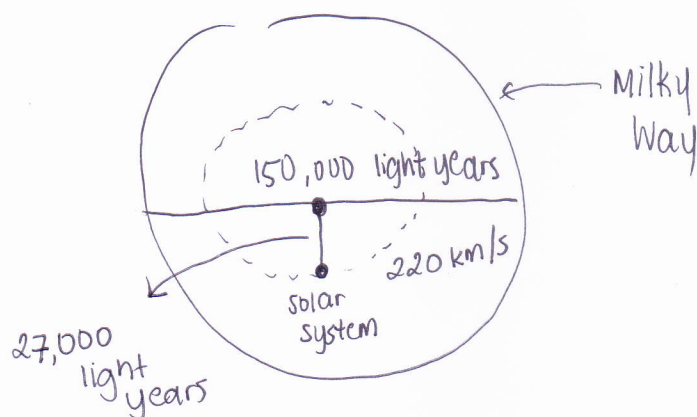 Milky
Way
150,000 light years
220 km/s
solar
system
27,000
light
years